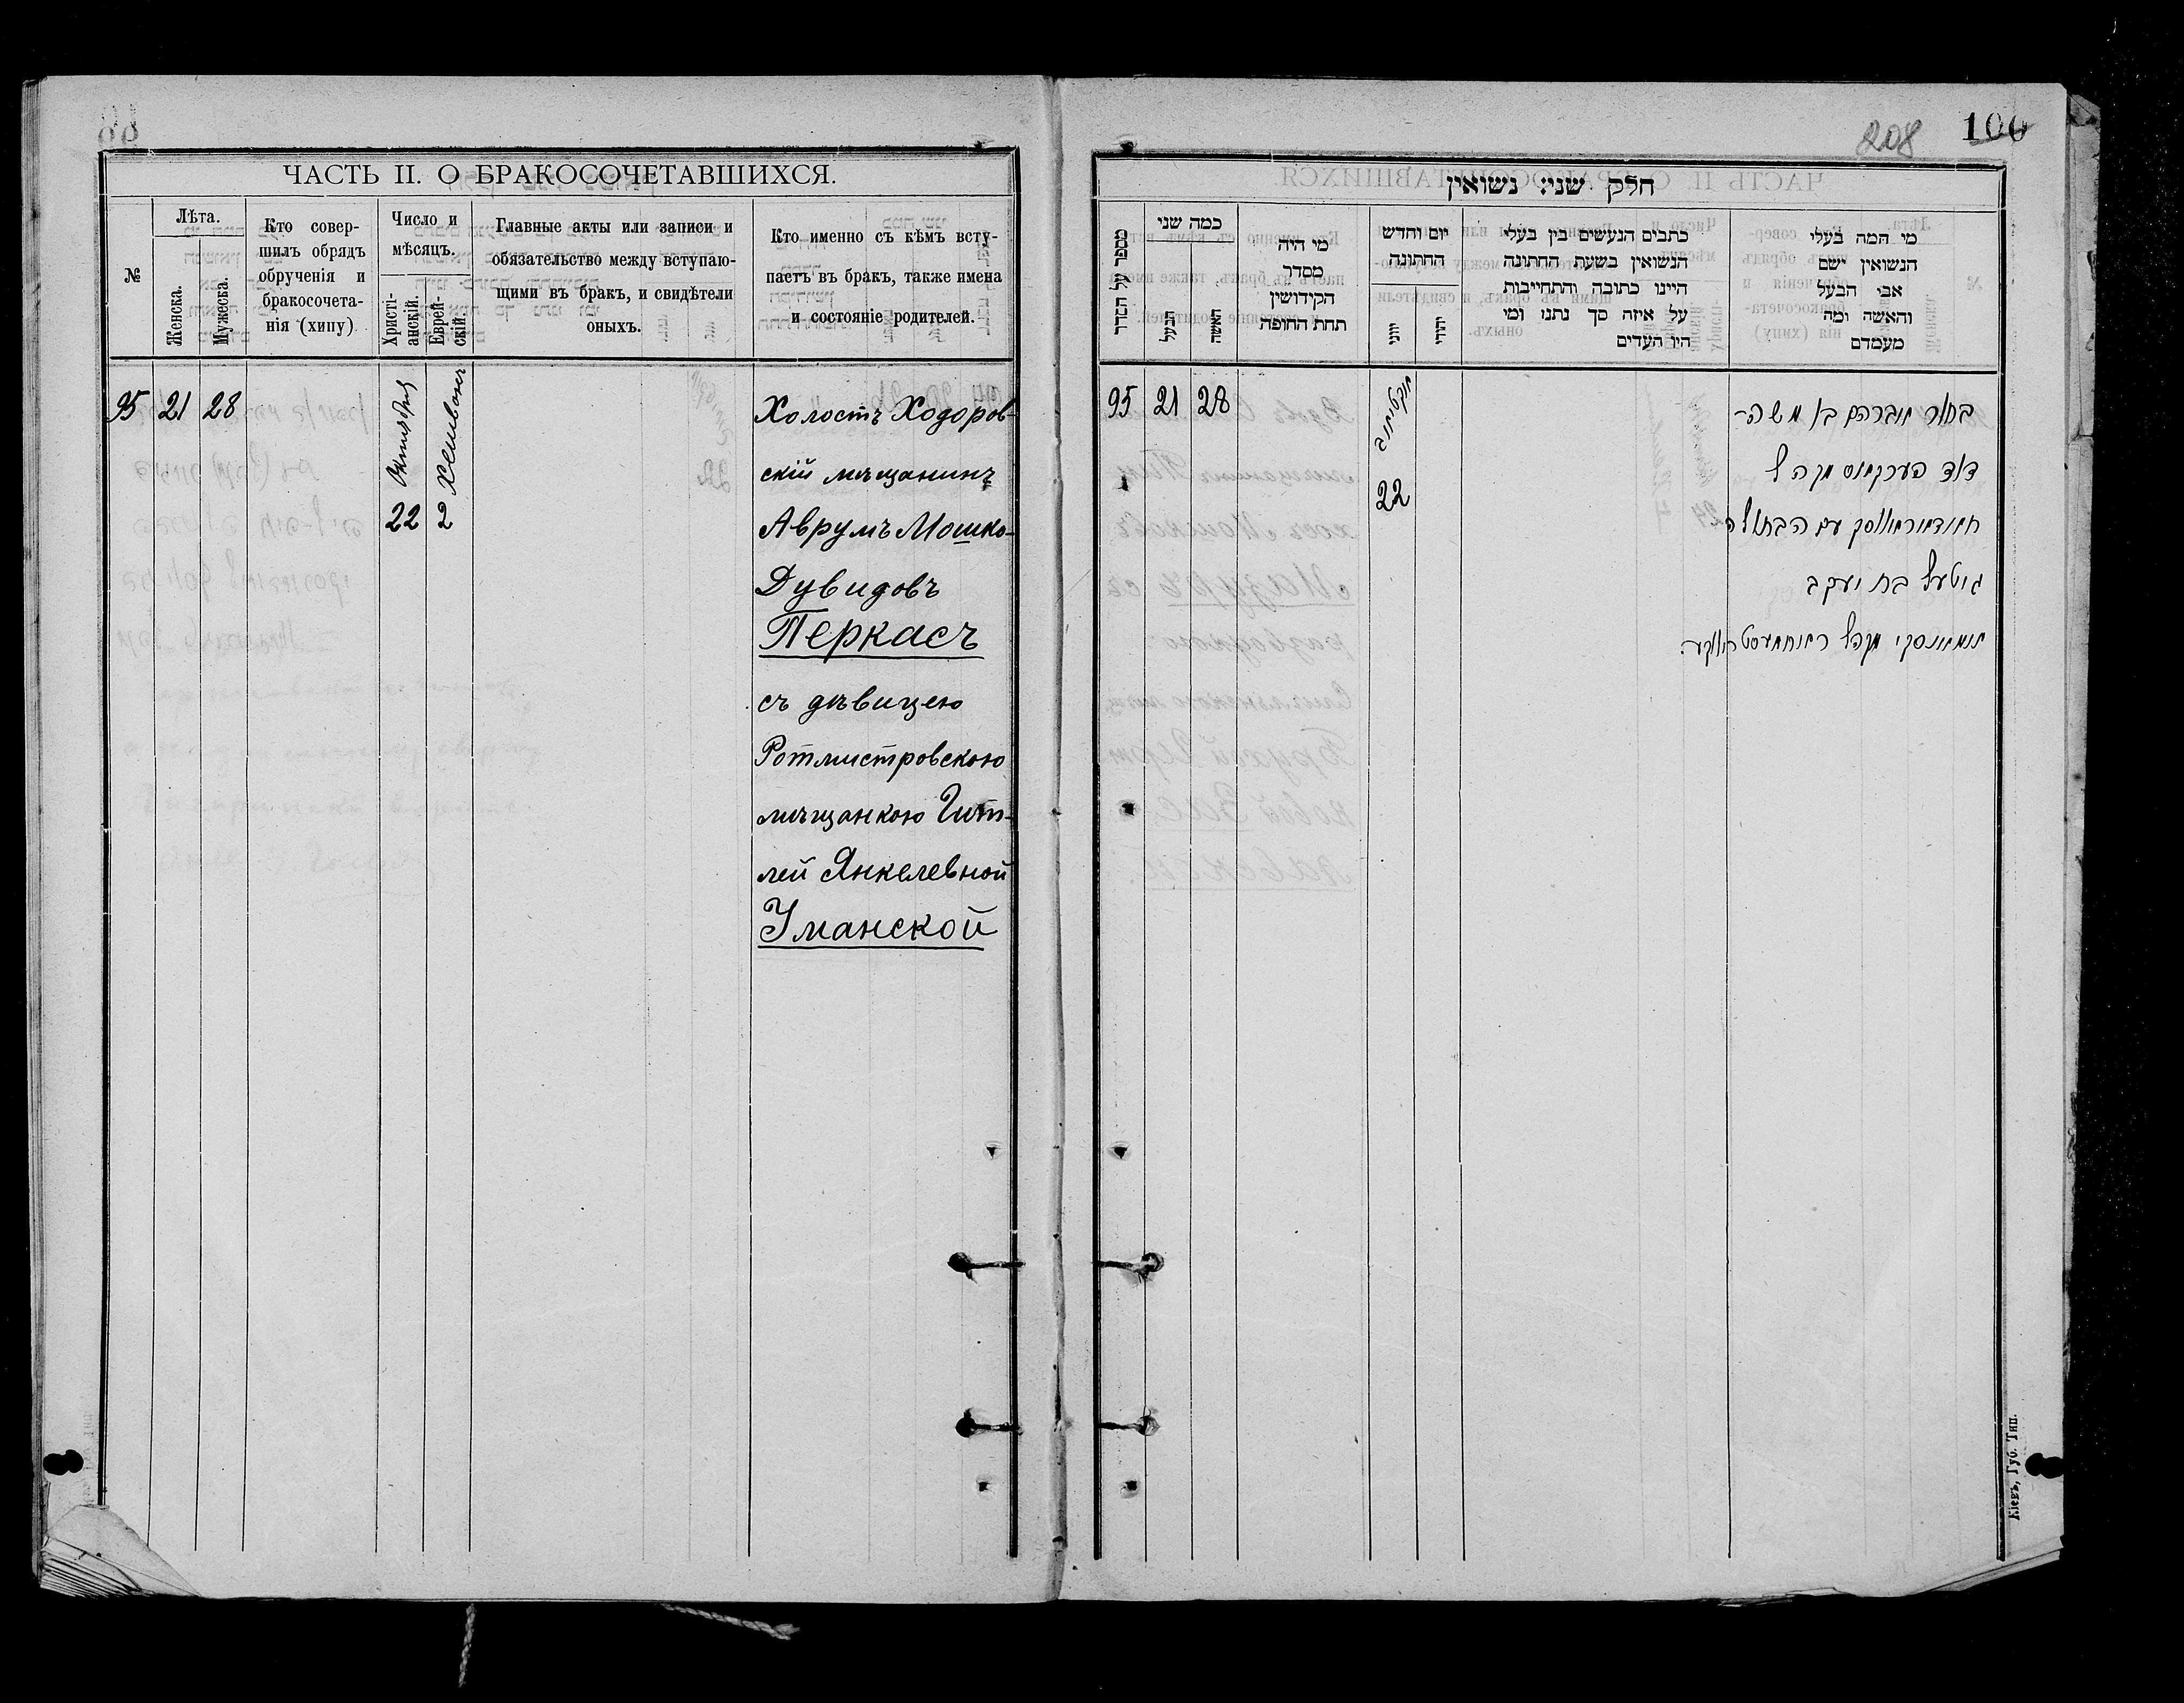 ЧАСТЬ II. О БРАКОСОЧЕТАВШИХСЯ.
№
Лѣта.
Женска.
Мужеска.
Кто совер-
шилъ обрядъ
обрученія и
бракосочета-
нія (хипу)
Число и
мѣсяцъ.
Христі-
анскій.
Еврей-
скій.
Главные акты или записи и
обязательство между вступаю-
щими въ бракъ, и свидѣтели
оныхъ.
Кто именно съ кѣмъ всту-
паетъ въ бракъ, также имена
и состояніе родителей.
95 21 28
Октября
22
2
Холостъ Ходоров-
скій мѣщанинъ
Аврумъ Мошко-
Дувидовъ
Перкасъ
съ дѣвицею
Ротмистровскою
мѣщанкою Гит-
лей Янкелевной
Уманской
208 100
חלק שני: נשואין
מספר על הסדר
כמה שני
הבעל
האשה
מי היה
מסדר
הקידושין
תחת החופה
יום וחדש
החתונה
יוני
יהודי
כתבים הנעשים בין בעלי
הנשואין בשעת החתונה
היינו כתובה והתחייבות
על איזה סך נתנו ומי
היו העדים
מי המה בעלי
הנשואין ושם
אבי הבעל
והאשה ומה
מעמדם
95 21 28
22
בחור אברהם בן משה-
דוד פערקאס מקהל
עם הבתולה
גיטעל בת יעקב
אומאנסקי מקהל
Кіевъ, Губ. Тип.